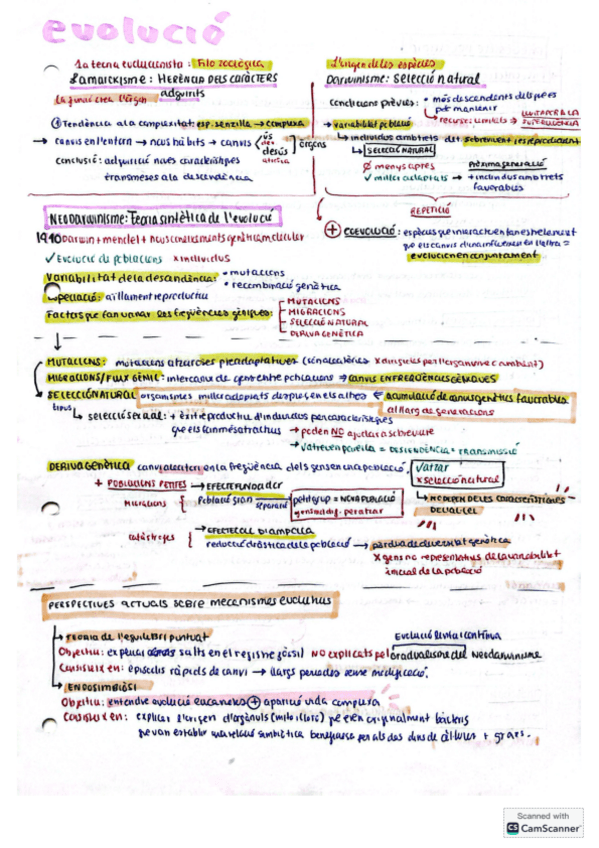 evolució
1a teoria evolucionista: Filo zoològica
Lamarckisme: HERÈNCIA DELS CARÀCTERS
adquirits
La funció crea l'òrgan
① Tendència a la complexitat: esp. senzilla → complexa
→ canvis en l'entorn → nous hàbits → canvis
ús
desús
òrgans
atròfia
conclusió: adquisició noves característiques
transmeses a la descendència
L'origen de les espècies
Darwinisme: selecció natural
Condicions prèvies: • més descendents dels que es
pot mantenir
→ recursos limitats →
LLUITA PER LA
SUPERVIVÈNCIA
• variabilitat població
→ individus amb trets dif. sobreviuen i es reprodueixen
→ SELECCIÓ NATURAL
menys aptes
✓ millor adaptats → + individus amb trets
favorables
Pròxima generació
REPETICIÓ
+ COEVOLUCIÓ: espècies que interactuen tan estretament
que els canvis d'una influencien en l'altra =
evolucionen conjuntament
NEODARWINISME: Teoria sintètica de l'evolució
1940 Darwin + mendel + nous coneixements genètica molecular
✓ Evolució de poblacions × individus
Variabilitat de la descendència: • mutacions
• recombinació genètica
Especiació: aïllament reproductiu
Factors que fan variar les freqüències gèniques:
- MUTACIONS
- MIGRACIONS
- SELECCIÓ NATURAL
- DERIVA GENÈTICA
MUTACIONS: mutacions atzaroses preadaptatives
MIGRACIONS/FLUX GÈNIC: intercanvi de gens entre poblacions → CANVIS EN FREQÜÈNCIES GÈNIQUES
SELECCIÓ NATURAL organismes millor adaptats desplacen els altres
acumulació de canvis genètics favorables
al llarg de generacions
tipus
→ selecció sexual: + èxit reproductiu d'individus per característiques
que els fan més atractius → poden NO ajudar a sobreviure
→ DESCENDÈNCIA = TRANSMISSIÓ
DERIVA GENÈTICA canvi aleatori en la freqüència dels gens en una població.
✓ atzar
× selecció natural
→ NO DEPÈN DE LES CARACTERÍSTIQUES
DE L'AL·LEL
+ POBLACIONS PETITES → EFECTE FUNDADOR
Migracions
Població gran
separació
petit grup = NOVA POBLACIÓ
catàstrofes
→ EFECTE COLL D'AMPOLLA
reducció dràstica de la població → pèrdua de diversitat genètica
× gens no representatius de la variabilitat
inicial de la població
PERSPECTIVES ACTUALS SOBRE MECANISMES EVOLUTIUS
→ TEORIA DE l'equilibri puntuat
Evolució lenta i contínua
Objectiu: explicar salts en el registre fòssil NO explicats pel gradualisme del Neodarwinisme
Consisteix en: episodis ràpids de canvi → llargs períodes sense modificació.
→ ENDOSIMBIOSI
Objectiu: entendre evolució eucariotes + aparició vida complexa
Consisteix en: explicar l'origen d'orgànuls
que van establir una relació simbiòtica
Scanned with
CS CamScanner